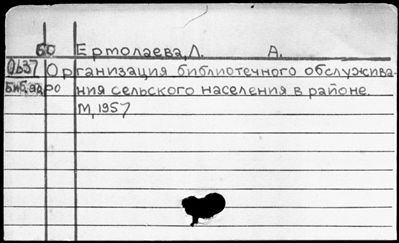 60 Ермолаева, Л. А.
0637 Организация библиотечного обслужива-
ния сельского населения в районе.
М, 1957